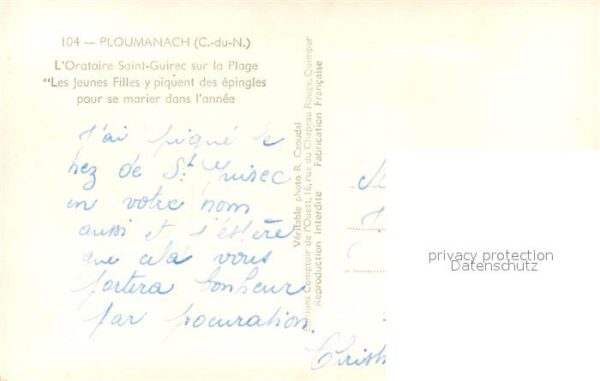 104 — PLOUMANACH (C.-du-N.)
L'Oratoire Saint-Guirec sur la Plage
"Les Jeunes Filles y piquent des épingles
pour se marier dans l'année
J'ai piqué le
nez de St Guirec
en votre nom
aussi et j'espère
que cela vous
portera bonheur
par procuration.
Véritable photo R. Caoudal
Editions Comptoir de l'Ouest, 16, rue du Chapeau Rouge, Quimper
Reproduction Interdite Fabrication Française
privacy protection
Datenschutz